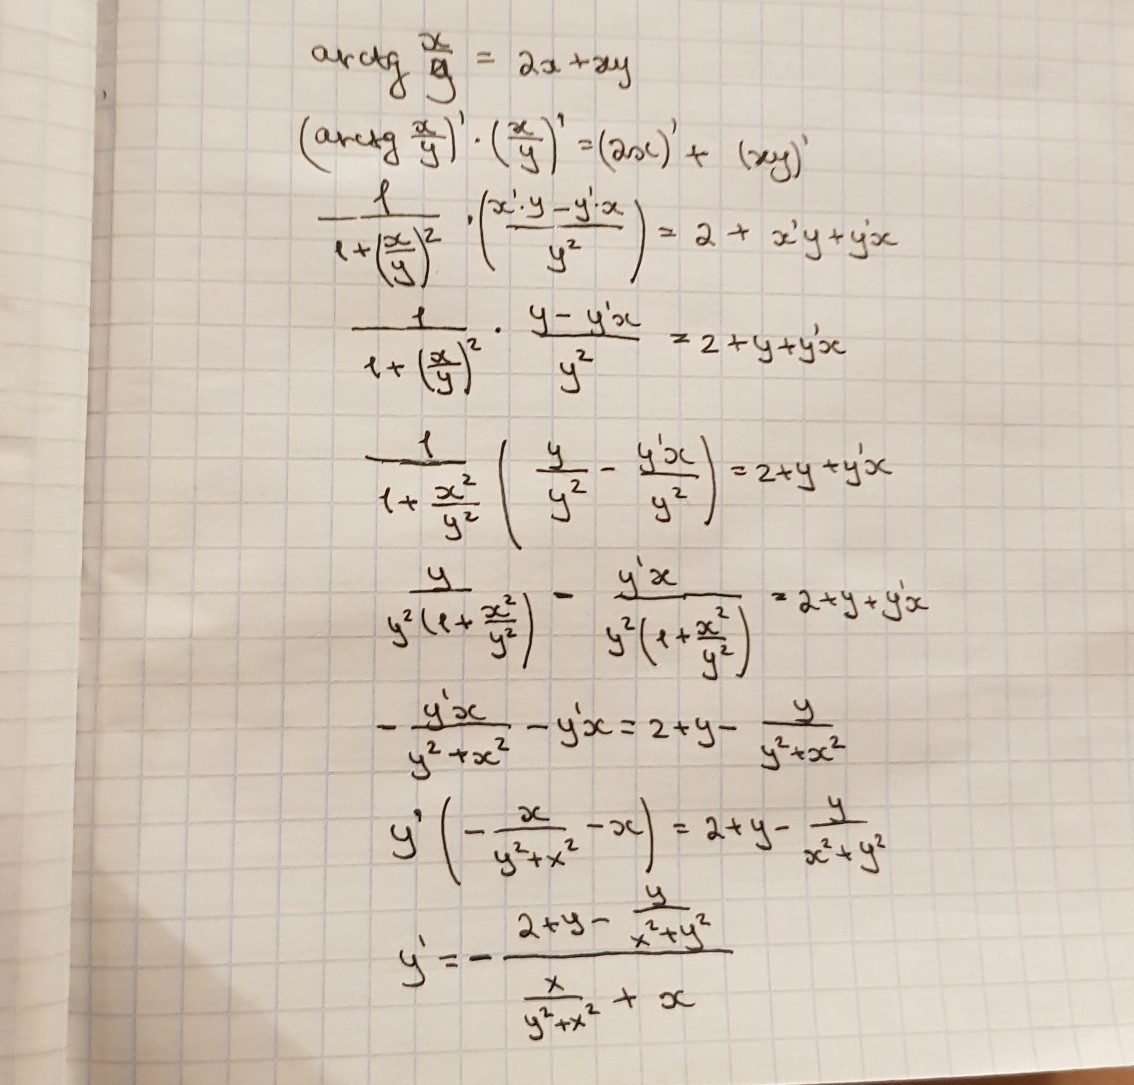 arctg x/y = 2x + xy
(arctg x/y)' · (x/y)' = (2x)' + (xy)'
1/(1+(x/y)²) · ((x'·y − y'·x)/y²) = 2 + x'y + y'x
1/(1+(x/y)²) · (y − y'x)/y² = 2 + y + y'x
1/(1+x²/y²) (y/y² − y'x/y²) = 2 + y + y'x
y/(y²(1+x²/y²)) − y'x/(y²(1+x²/y²)) = 2 + y + y'x
− y'x/(y²+x²) − y'x = 2 + y − y/(y²+x²)
y' (− x/(y²+x²) − x) = 2 + y − y/(x²+y²)
y' = − (2 + y − y/(x²+y²))/(x/(y²+x²) + x)